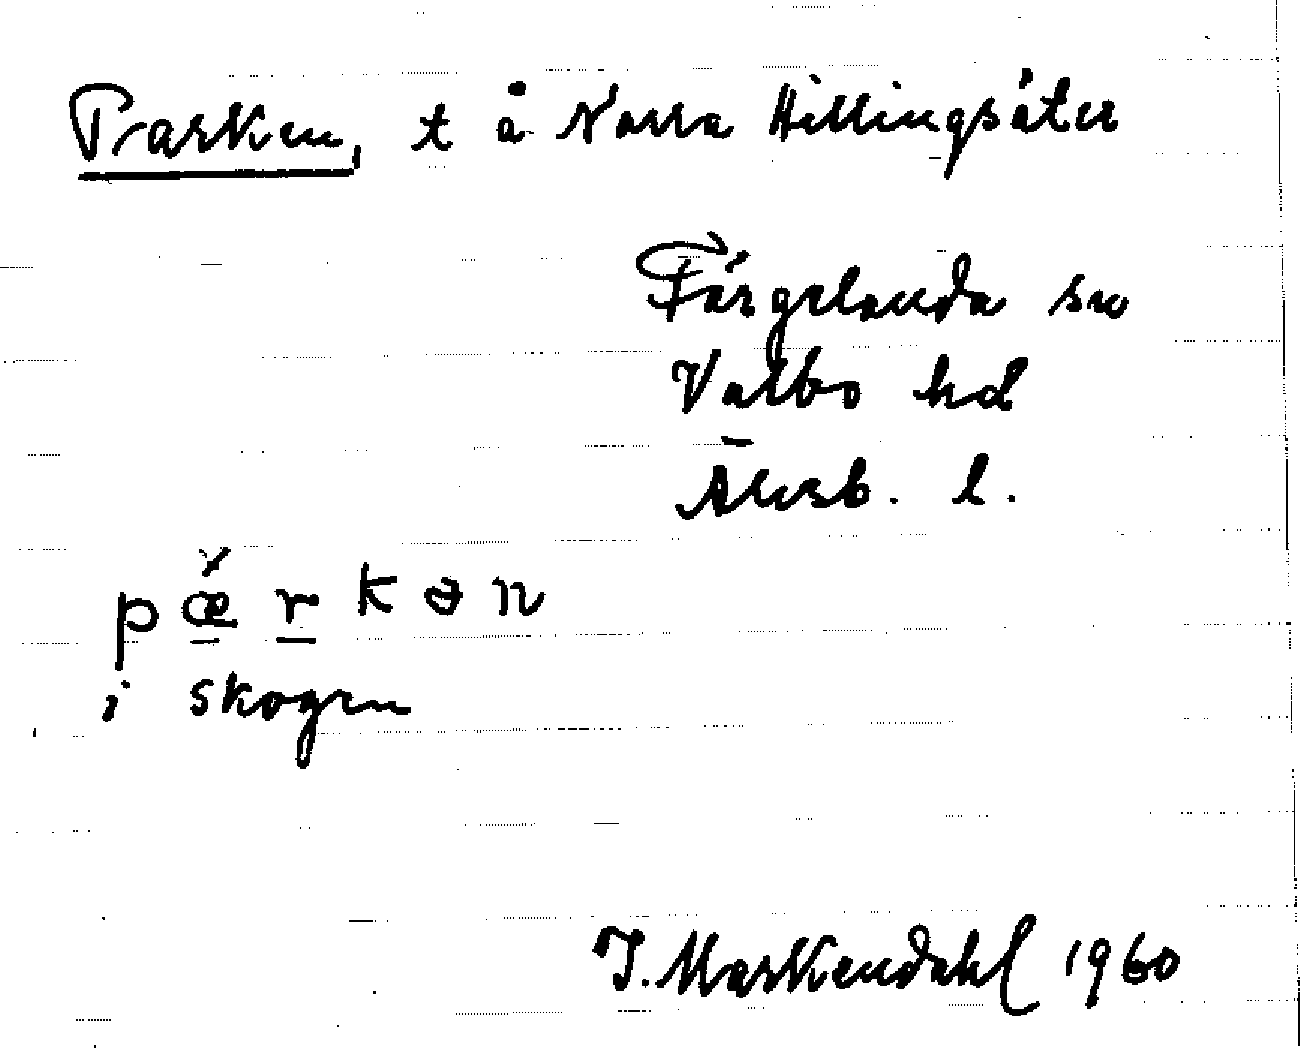 Parken, t å Norra Hillingsäter
Färgelanda sn
Valbo hd
Älvsb. l.
pæ̌rkən
i skogen
I. Markendahl 1960